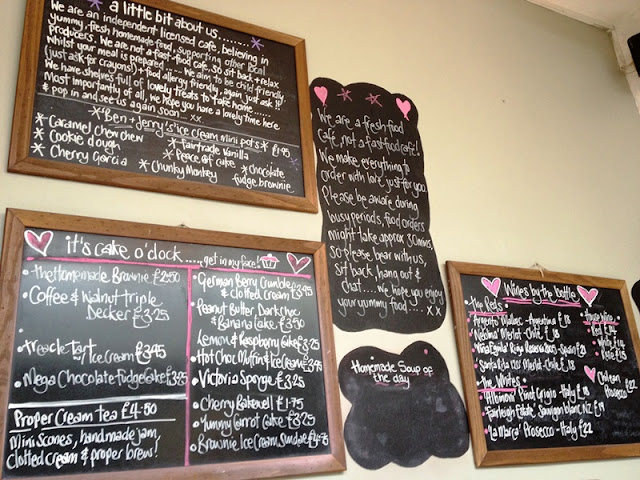 a little bit about us........
We are an independent licensed cafe, believing in
yummy, fresh homemade food, supporting other local
producers. We are not a fast-food cafe. So sit back + relax
whilst your meal is prepared. We aim to be child friendly,
(just ask for crayons!) + food allergy friendly, again just ask!!
We have shelves full of lovely treats to take home......
Most importantly of all, we hope you have a lovely time here
& pop in and see us again soon... xx
* "Ben + Jerry's" ice cream mini pots * £1.95
* Caramel Chew chew
* Fairtrade Vanilla
* Cookie dough
* Peace of cake
* Chocolate
fudge brownie
* Cherry Garcia
* Chunky Monkey
We are a fresh food
cafe, not a fast food cafe!
We make everything to
order with love just for you
Please be aware during
busy periods, food orders
might take approx 30mins,
so please bear with us,
sit back, hang out &
chat.... We hope you enjoy
your yummy food.... x x
it's cake o'clock ...... get in my face!
• The Homemade Brownie £2.50
• Coffee & Walnut triple
Decker £3.25
• Treacle Tart
w/ Ice cream £3.95
• Mega Chocolate fudge Cake £3.25
Proper Cream tea £4.50
Mini Scones, handmade jam,
Clotted cream & proper brews!
• German Berry Crumble
& clotted Cream £3.95
• Peanut Butter, Dark choc
& Banana Cake £3.50
• Lemon & Raspberry Cake £3.25
• Hot Choc Muffin & Ice Cream £3.95
• Victoria Sponge £3.25
• Cherry Bakewell £1.75
• Yummy Carrot Cake £3.25
• Brownie Ice Cream Sundae £4.75
Homemade Soup of
the day
Wines by the bottle
• The Reds
• Argento Malbec - Argentina £18
• Merlot - Chile £18
• Rioja Reserva - Spain £21
• Santa Rita Merlot - Chile £18
• The Whites
• Pinot Grigio - Italy £18
• Fairleigh Estate, Sauvignon blanc, NZ £19
• "La Marca" Prosecco - Italy £22
House Wine
• Red
• White
• Rose
Prosecco
£22